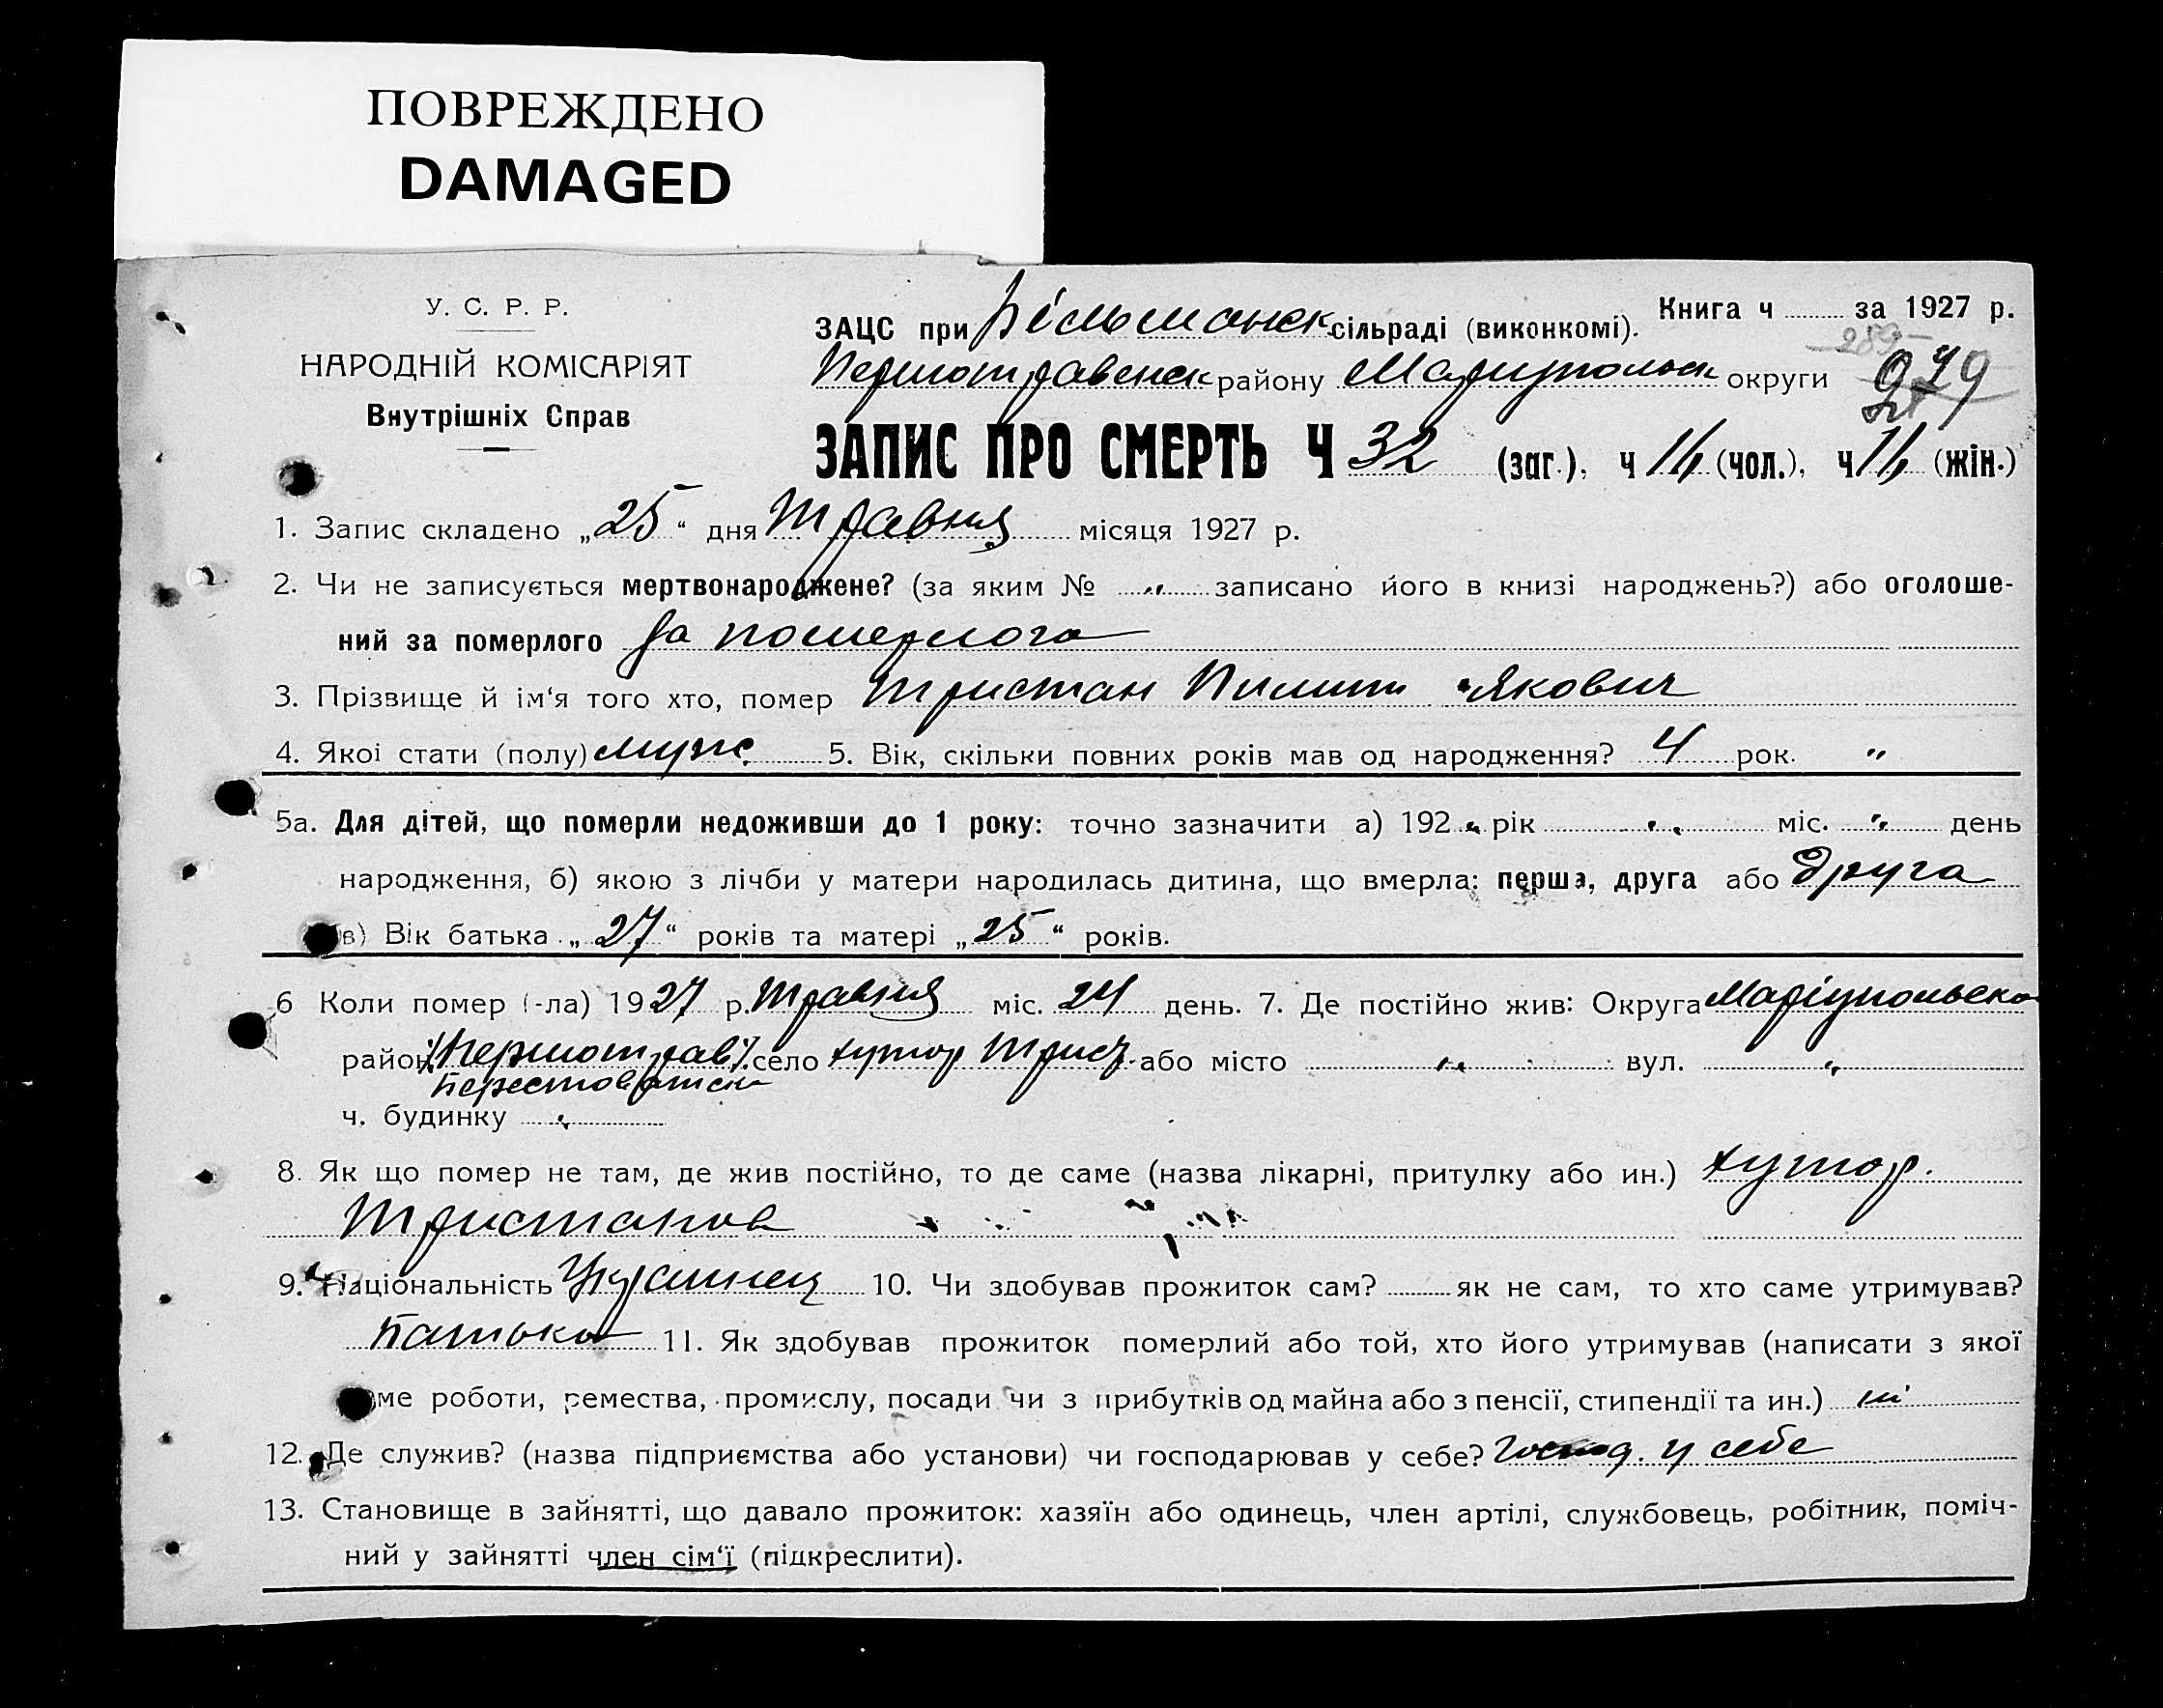 ПОВРЕЖДЕНО
DAMAGED
У. С. Р. Р.
НАРОДНІЙ КОМІСАРІЯТ
Внутрішніх Справ
Книга ч за 1927 р.
ЗАЦС при сільраді (виконкомі).
289
Першотравенськ району Маріупольськ округи
ЗАПИС ПРО СМЕРТЬ Ч 32 (заг.), ч 16 (чол.), ч 16 (жін.)
1. Запис складено „25“ дня травня місяця 1927 р.
2. Чи не записується мертвонароджене? (за яким № „ записано його в книзі народжень?) або оголоше-
ний за померлого За померлого
3. Прізвище й ім‘я того хто, помер Тристан Пилип Якович
4. Якої стати (полу) муже. 5. Вік, скільки повних років мав од народження? 4 рок. „
5а. Для дітей, що померли недоживши до 1 року: точно зазначити а) 192 „ рік „ міс. „ день
народження, б) якою з лічби у матери народилась дитина, що вмерла: перша, друга або друга
в) Вік батька „27“ років та матері „25“ років.
6 Коли помер (-ла) 1927 р. травня міс. 24 день. 7. Де постійно жив: Округа Маріупольська
район (Першотрав) село хутор Трист. або місто „ вул. „
ч. будинку „
8. Як що помер не там, де жив постійно, то де саме (назва лікарні, притулку або ин.) хутор.
Тристанов
9. Національність Украинец 10. Чи здобував прожиток сам? як не сам, то хто саме утримував?
батько 11. Як здобував прожиток померлий або той, хто його утримував (написати з якої
ме роботи, ремества, промислу, посади чи з прибутків од майна або з пенсії, стипендії та ин.) ні
12. Де служив? (назва підприємства або установи) чи господарював у себе? Господ. у себе
13. Становище в зайнятті, що давало прожиток: хазяїн або одинець, член артілі, службовець, робітник, поміч-
ний у зайнятті член сім‘ї (підкреслити).